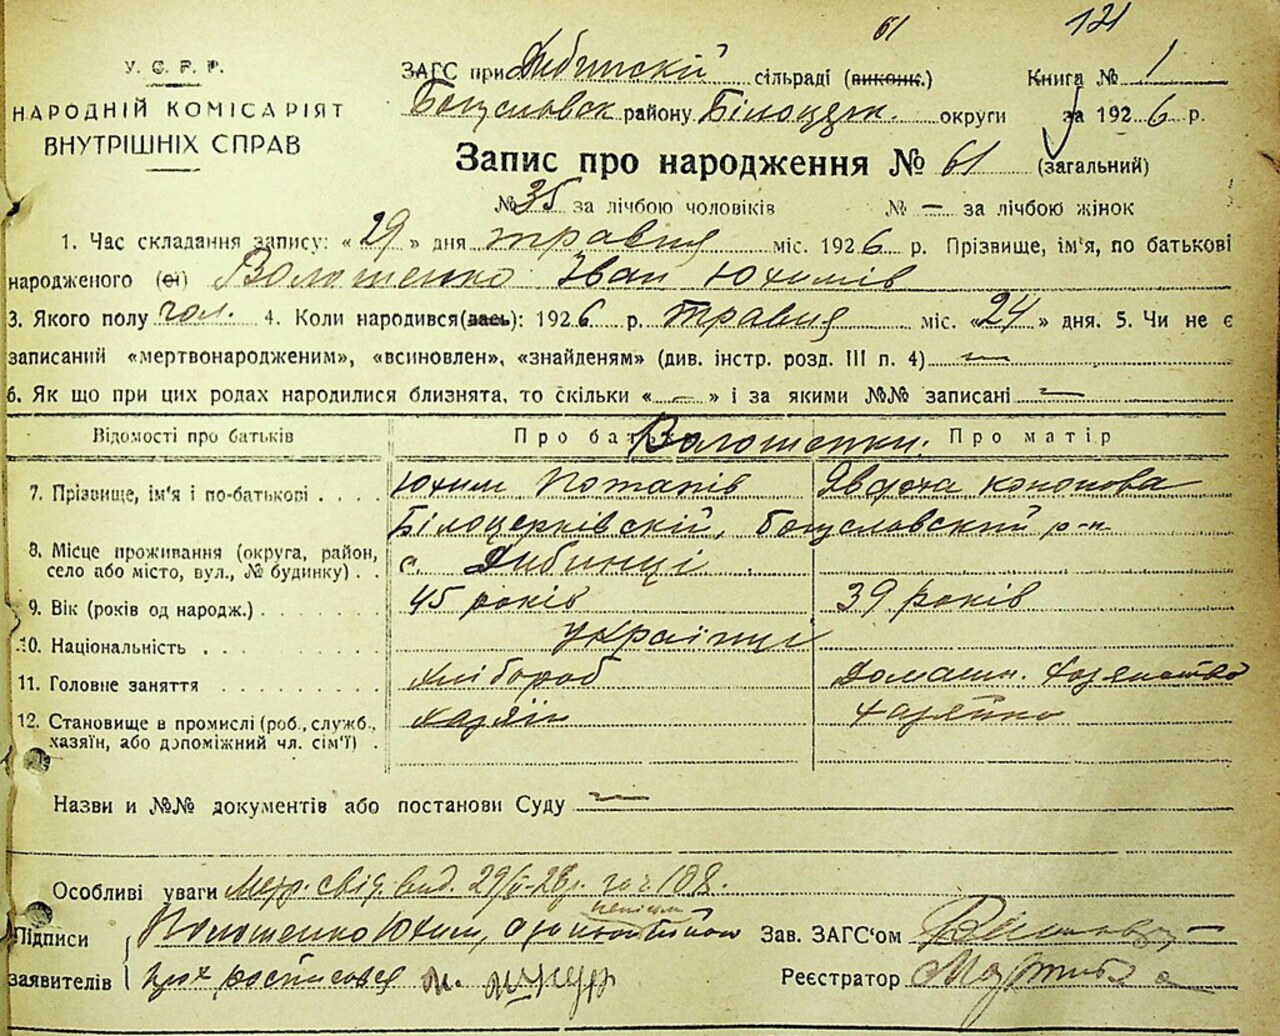 61 121
У. С. Р. Р.
НАРОДНІЙ КОМІСАРІЯТ
ВНУТРІШНІХ СПРАВ
ЗАГС при Дибинскій сільраді (виконк.) Книга № 1
Богуславск району Білоцерк. округи за 1926 р.
Запис про народження № 61 (загальний)
№ 35 за лічбою чоловіків № — за лічбою жінок
1. Час складання запису: «29» дня травня міс. 1926 р. Прізвище, ім'я, по батькові
народженого (ої) Волошенко Іван Юхимів
3. Якого полу чол. 4. Коли народився(лась): 1926 р. травня міс. «24» дня. 5. Чи не є
записаний «мертвонародженим», «всиновлен», «знайденям» (див. інстр. розд. III п. 4) —
6. Як що при цих родах народилися близнята, то скільки « — » і за якими №№ записані —
Відомості про батьків Про батька Волошенки. Про матір
7. Прізвище, ім'я і по-батькові . . . . Юхим Потапів Явдоха Кононова
Білоцерківскій, богуславский р-н
8. Місце проживання (округа, район,
село або місто, вул., № будинку) . . с. Дибинці
9. Вік (років од народж.) . . . . . . . 45 років 39 років
10. Національність . . . . . . . . українці
11. Головне заняття . . . . . . . . . хлібороб домашн. хазяйство
12. Становище в промислі (роб., служб.,
хазяїн, або допоміжний чл. сім'ї) . хазяїн хазяйка
Назви и №№ документів або постанови Суду —
Особливі уваги Метр. свід. вид. 29/V-26р. за ч. 108.
Підписи Волошенко Юхим, а Зав. ЗАГС'ом
заявителів росписався Реєстратор